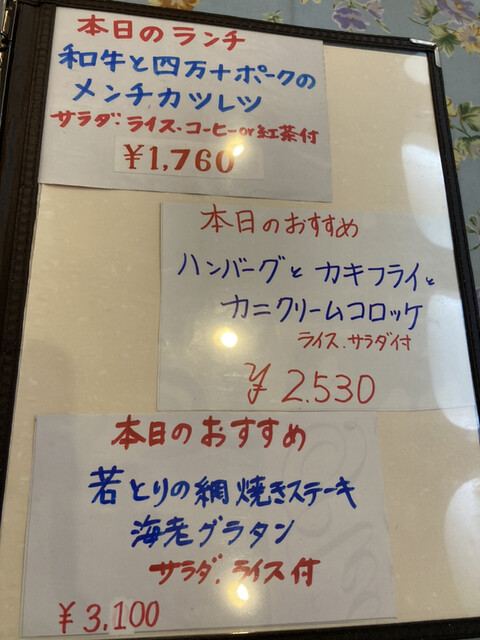 本日のランチ
和牛と四万十ポークの
メンチカツレツ
サラダ・ライス・コーヒーor紅茶付
¥1,760
本日のおすすめ
ハンバーグと カキフライと
カニクリームコロッケ
ライス、サラダ付
¥2.530
本日のおすすめ
若とりの網焼きステーキ
海老グラタン
サラダ、ライス付
¥3,100